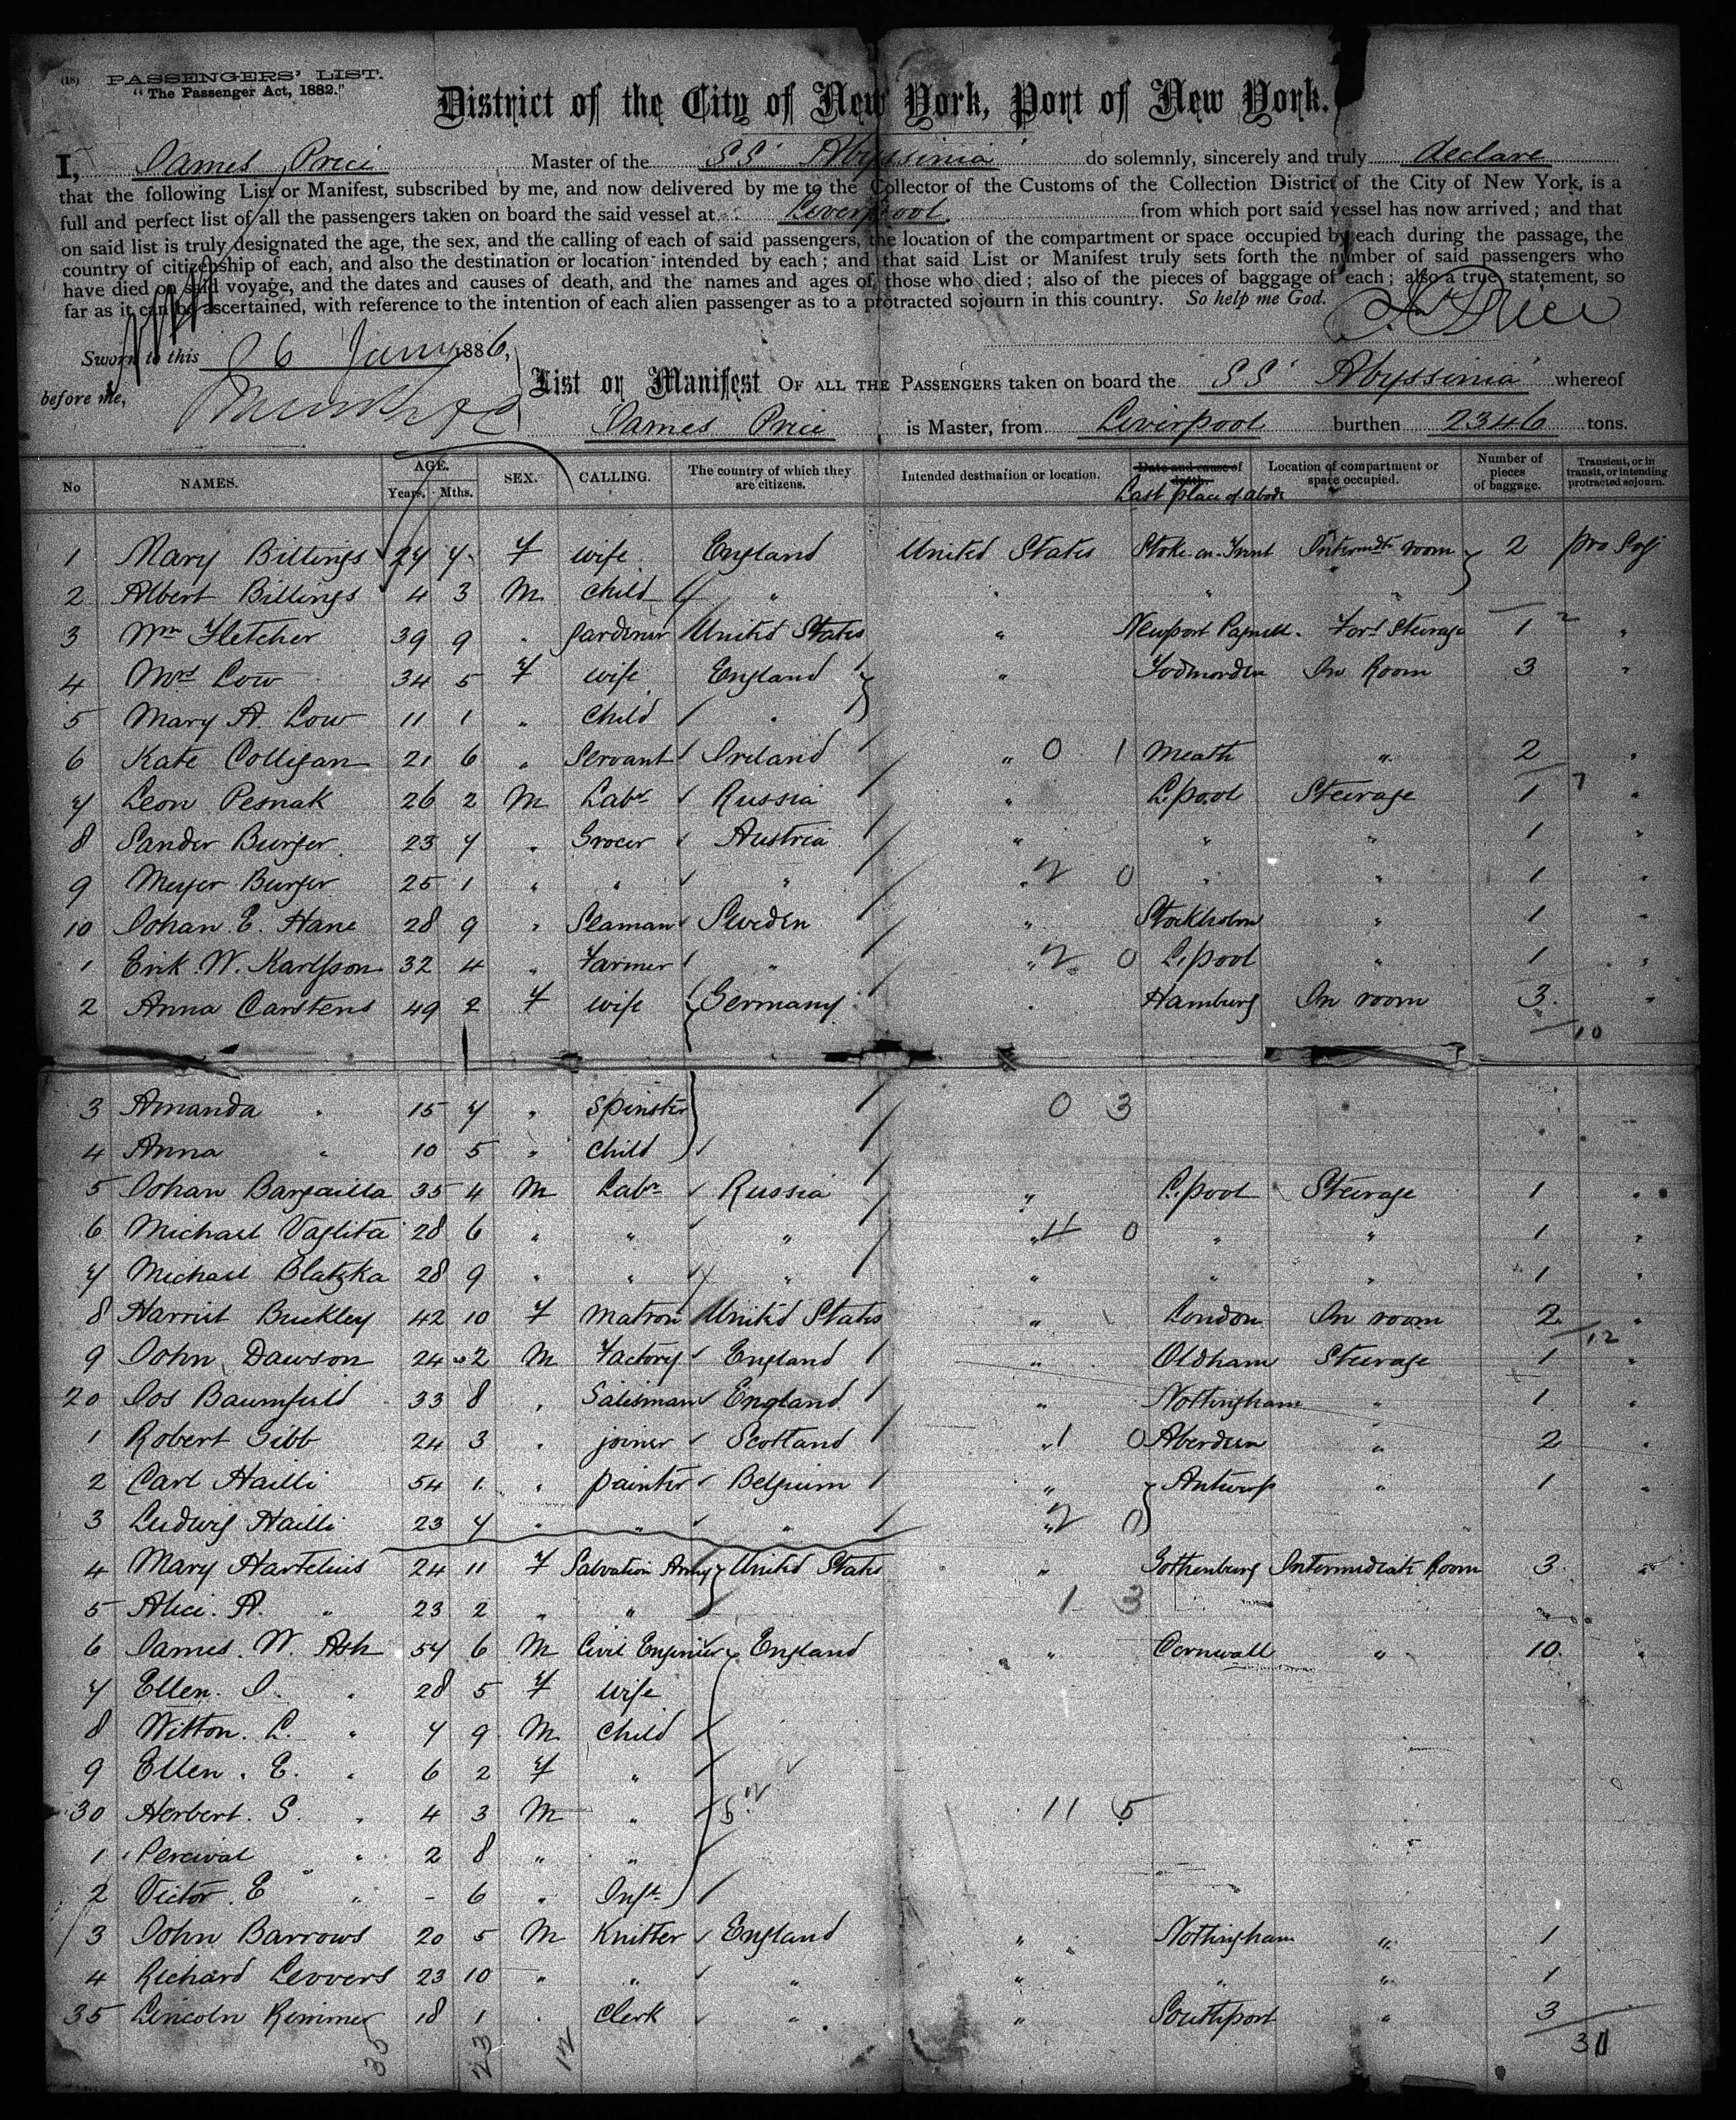 (18) PASSENGERS' LIST.
"The Passenger Act, 1882."
District of the City of New York, Port of New York.
I, James Price Master of the SS' Abyssinia' do solemnly, sincerely and truly declare
that the following List or Manifest, subscribed by me, and now delivered by me to the Collector of the Customs of the Collection District of the City of New York, is a
full and perfect list of all the passengers taken on board the said vessel at Liverpool from which port said vessel has now arrived; and that
on said list is truly designated the age, the sex, and the calling of each of said passengers, the location of the compartment or space occupied by each during the passage, the
country of citizenship of each, and also the destination or location intended by each; and that said List or Manifest truly sets forth the number of said passengers who
have died on said voyage, and the dates and causes of death, and the names and ages of those who died; also of the pieces of baggage of each; also a true statement, so
far as it can be ascertained, with reference to the intention of each alien passenger as to a protracted sojourn in this country. So help me God. Jas Price
Sworn to this 26 Jany 1886,
before me,
List or Manifest OF ALL THE PASSENGERS taken on board the SS' Abyssinia' whereof
James Price is Master, from Liverpool burthen 2346 tons.
No NAMES. AGE. Years. Mths. SEX. CALLING. The country of which they are citizens. Intended destination or location. Date and cause of death. Last place of abode Location of compartment or space occupied. Number of pieces of baggage. Transient, or in transit, or intending protracted sojourn.
1 Mary Billings 24 7 F wife England United States Stoke on Trent Intermdte room 2 pro Soj
2 Albert Billings 4 3 M child " " " "
3 Wm Fletcher 39 9 " gardener United States " Newport Pagnell Ford Steerage 1 2 "
4 Mrs Low 34 5 F wife England " Todmorden In Room 3 "
5 Mary A. Low 11 1 " child "
6 Kate Colligan 21 6 " Servant Ireland " 0 1 Meath " 2 "
7 Leon Pesnak 26 2 M Labr Russia " L.pool Steerage 1 7 "
8 Sander Burger 23 7 " Grocer Austria " " " 1 "
9 Meyer Burger 25 1 " " " " 2 0 " " 1 "
10 Johan E. Hane 28 9 " Seaman Sweden " Stockholm " 1 "
1 Erik W. Karlsson 32 4 " Farmer " " 2 0 L.pool " 1 "
2 Anna Carstens 49 2 F wife Germany " Hamburg In room 3 "
10
3 Amanda " 15 7 " Spinster 0 3
4 Anna " 10 5 " child
5 Johan Bargailla 35 4 M Labr Russia " L.pool Steerage 1 "
6 Michael Vaglita 28 6 " " " " 4 0 " " 1 "
7 Michael Blatzka 28 9 " " " " " " 1 "
8 Harriet Buckley 42 10 F matron United States " London In room 2 "
12
9 John Dawson 24 2 M Factory England " Oldham Steerage 1 "
20 Jos Baumfield 33 8 " Salesman England " Nottingham " 1 "
1 Robert Gibb 24 3 " joiner Scotland " 1 0 Aberdeen " 2 "
2 Carl Hailli 54 1 " painter Belgium " Antwerp " 1 "
3 Ludwig Hailli 23 7 " " " " 2 0
4 Mary Hartelius 24 11 F Salvation Army United States " Gothenburg Intermediate Room 3 "
5 Alice A. " 23 2 " " 1 3
6 James W. Ash 57 6 M Civil Engineer England " Cornwall " 10 "
7 Ellen J. " 28 5 F Wife
8 Witton L. " 7 9 M Child
9 Ellen E. " 6 2 F "
30 Herbert S. " 4 3 M " 5 2 11 5
1 Percival " 2 8 " "
2 Victor E " - 6 " Inft
3 John Barrows 20 5 M Knitter England " Nottingham " 1
4 Richard Levvers 23 10 " " " " " " 1
35 Lincoln Rimmer 18 1 " Clerk " " Southport " 3
31
35 23 12